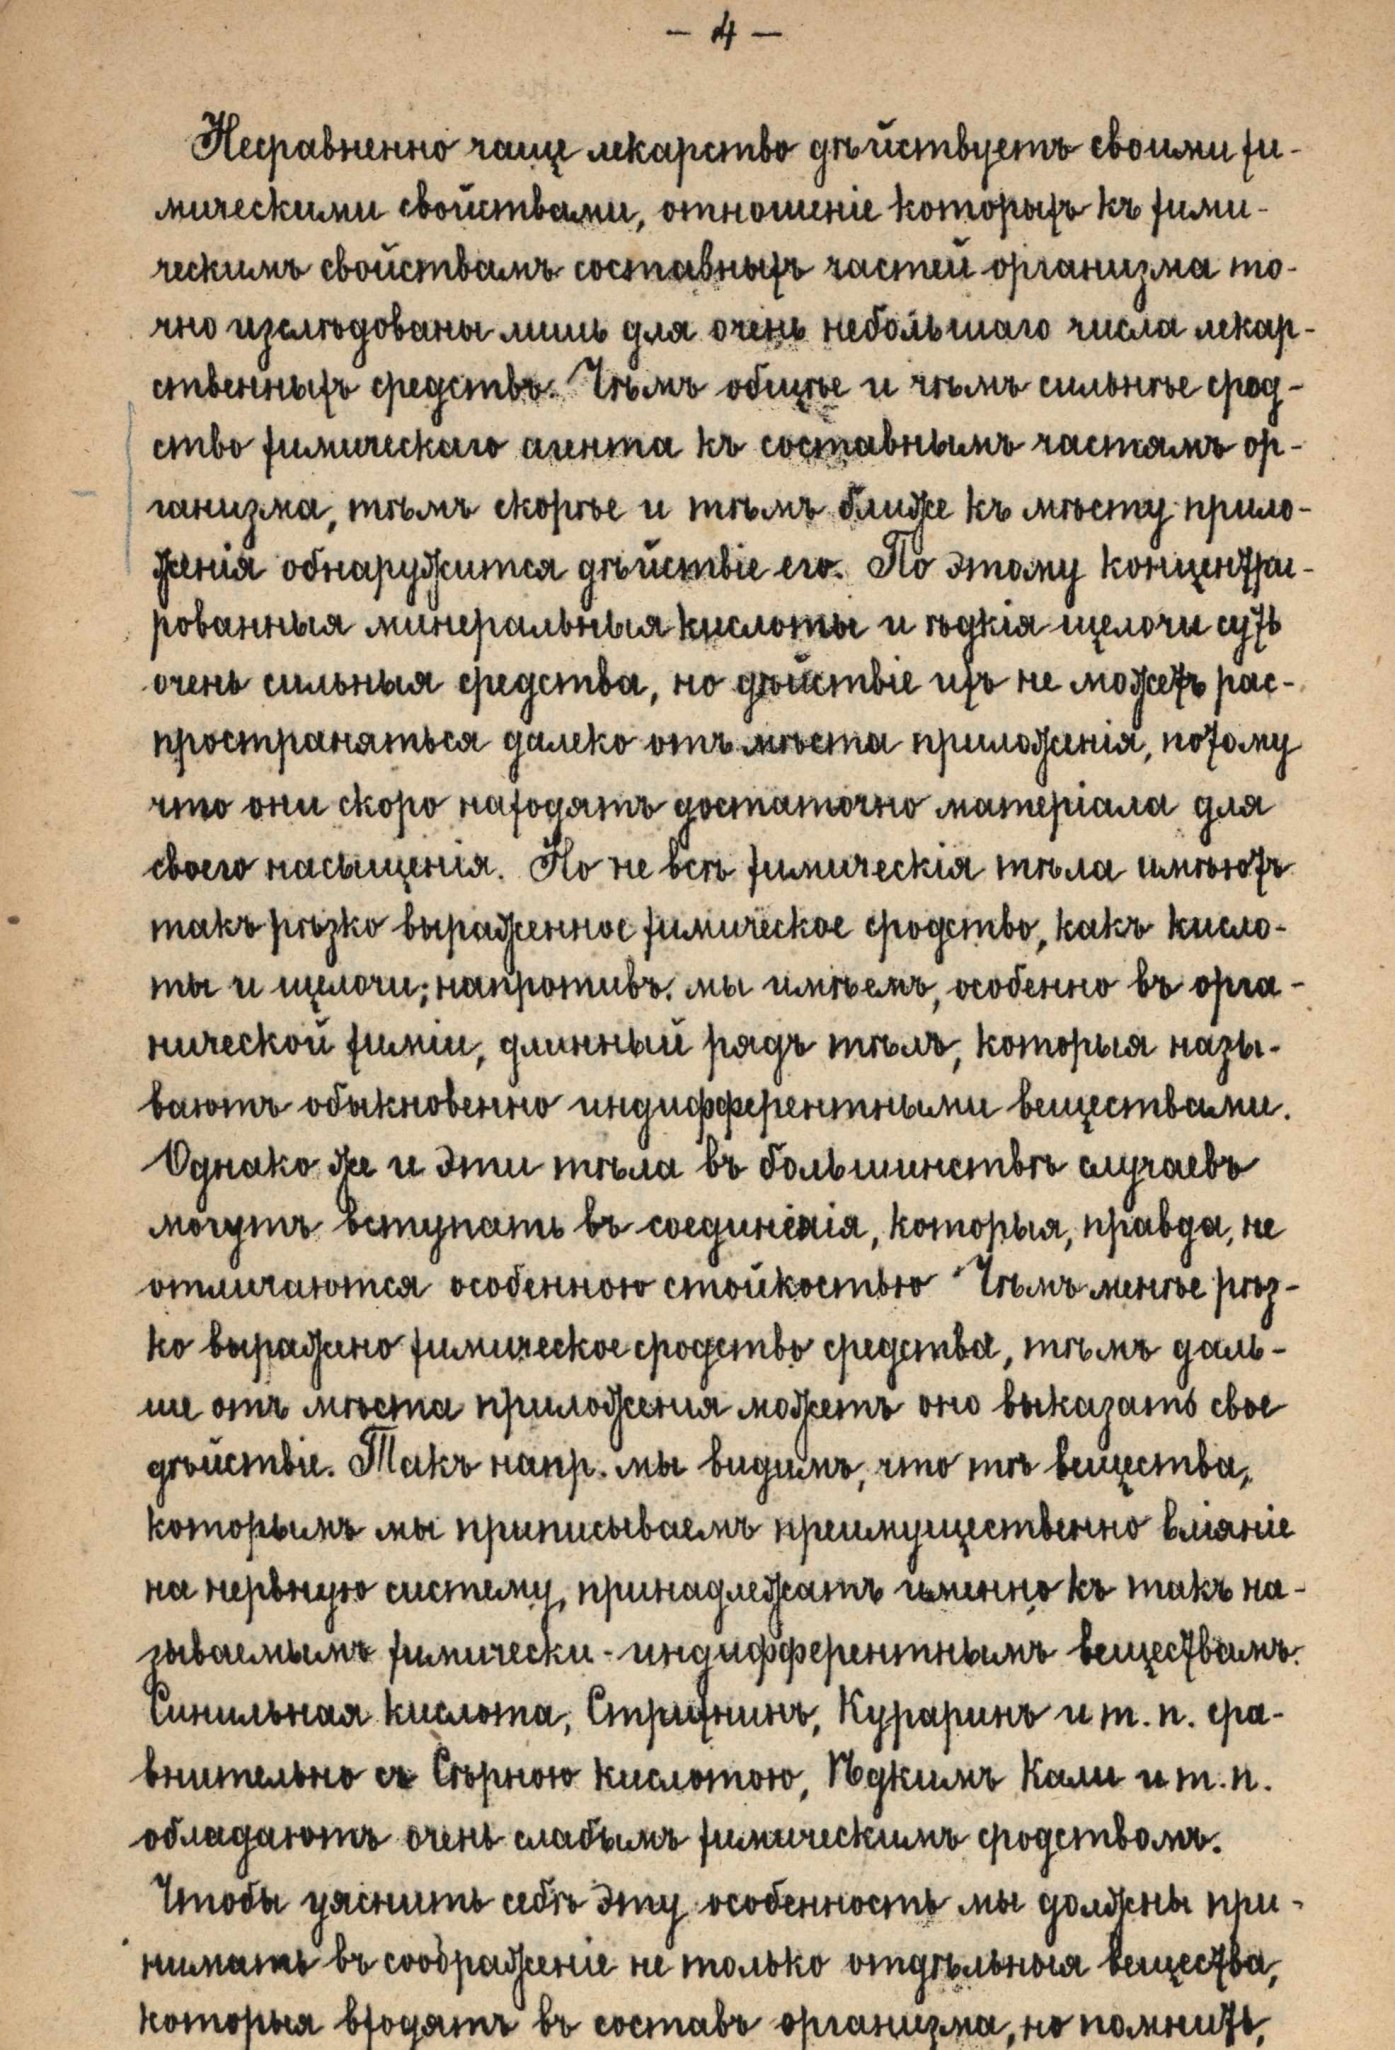 — 4 —
Несравненно чаще лекарство дѣйствуетъ своими хи-
мическими свойствами, отношеніе которыхъ къ хими-
ческимъ свойствамъ составныхъ частей организма то-
чно изслѣдованы лишь для очень небольшаго числа лекар-
ственныхъ средствъ. Чѣмъ общѣе и чѣмъ сильнѣе срод-
ство химическаго агента къ составнымъ частямъ ор-
ганизма, тѣмъ скорѣе и тѣмъ ближе къ мѣсту прило-
женія обнаружится дѣйствіе его. По этому концентри-
рованныя минеральныя кислоты и ѣдкія щелочи суть
очень сильныя средства, но дѣйствіе ихъ не можетъ рас-
пространяться далеко отъ мѣста приложенія, потому
что они скоро находятъ достаточно матеріала для
своего насыщенія. Но не всѣ химическія тѣла имѣютъ
такъ рѣзко выраженное химическое сродство, какъ кисло-
ты и щелочи; напротивъ. мы имѣемъ, особенно въ орга-
нической химіи, длинный рядъ тѣлъ, которыя назы-
ваютъ обыкновенно индифферентными веществами.
Однако же и эти тѣла въ большинствѣ случаевъ
могутъ вступать въ соединенія, которыя, правда, не
отличаются особенною стойкостью Чѣмъ менѣе рѣз-
ко выражено химическое сродство средства, тѣмъ даль-
ше отъ мѣста приложения можетъ оно выказать свое
дѣйствіе. Такъ напр. мы видимъ, что тѣ вещества,
которымъ мы приписываемъ преимущественно вліяніе
на нервную систему, принадлежатъ именно къ такъ на-
зываемымъ химически-индифферентнымъ веществамъ.
Синильная кислота, Стрихнинъ, Кураринъ и т. п. сра-
внительно съ Сѣрною кислотою, Ѣдкимъ Кали и т. п.
обладаютъ очень слабымъ химическимъ сродствомъ.
Чтобы уяснить себѣ эту особенность мы должны при-
нимать въ соображеніе не только отдѣльныя вещества,
которыя входятъ въ составъ организма, но помнить,